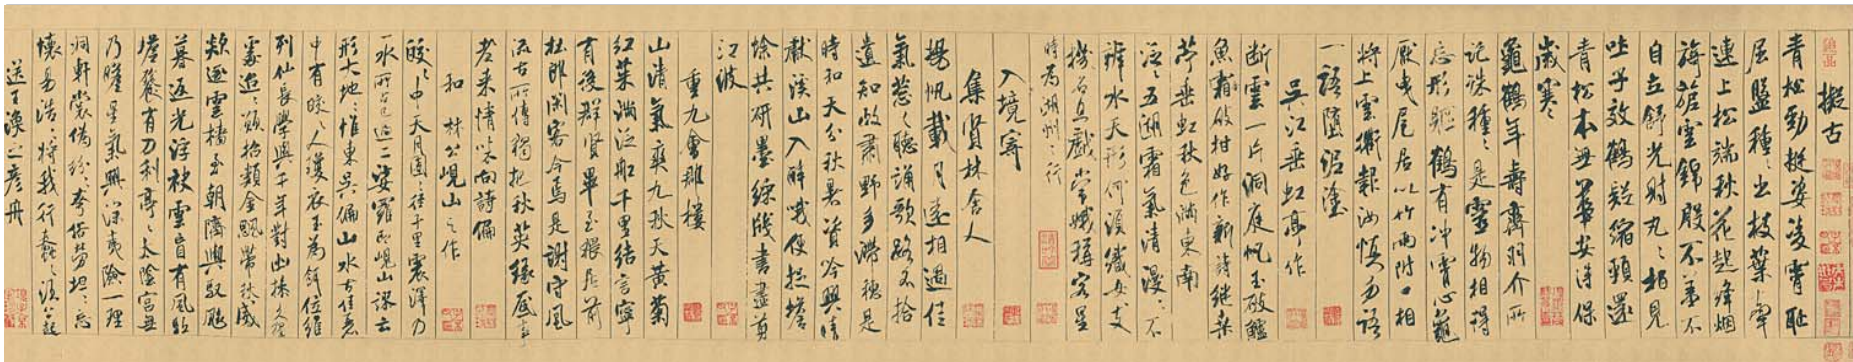 擬古
青松勁挺姿凌霄恥
屈盤種種出枝葉牽
連上松端秋花起絳烟
旖旎雲錦殷不羞不
自立舒光射丸丸柏見
吐子效鶴疑縮頸還
青松本無華安得保
歲寒
龜鶴年壽齊羽介所
託殊種種是靈物相得
忘形軀鶴有冲霄心龜
厭曳尾居以竹兩附口相
將上雲衢報汝慎勿語
一語墮泥塗
吳江垂虹亭作
斷雲一片洞庭帆玉破鱸
魚霜破柑好作新詩繼桑
苧垂虹秋色滿東南
泛泛五湖霜氣清漫漫不
辨水天形何須織女支
機石且戲常娥稱客星
時為湖州之行
入境寄
集賢林舍人
揚帆載月遠相過佳
氣蔥蔥聽誦歌路不拾
遺知政肅野多滯穗是
時和天分秋暑資吟興晴
獻溪山入醉哦便捉蟾
蜍共研墨綵牋書盡剪
江波
重九會郡樓
山清氣爽九秋天黃菊
紅茱滿泛船千里結言寧
有後群賢畢至猥居前
杜郎閑客今焉是謝守風
流古所傳獨把秋英緣底事
老來情味向詩偏
和林公峴山之作
皎皎中天月團團徑千里震澤乃
一水所占已過二娑羅即峴山謬云
形大地地惟東吳偏山水古佳麗
中有皎皎人瓊衣玉為餌位維
列仙長學與千年對幽操久獨
處迢迢願招類金颸帶秋威
欻逐雲檣至朝隮輿馭飆
暮返光浮袂雲盲有風馭
蟾餮有刀利亭亭太陰宮無
乃瞻星氣興深夷險一理
洞軒裳偽紛紛夸俗勞坦坦忘
懷易浩浩將我行蠢蠢須公起
送王渙之彥舟